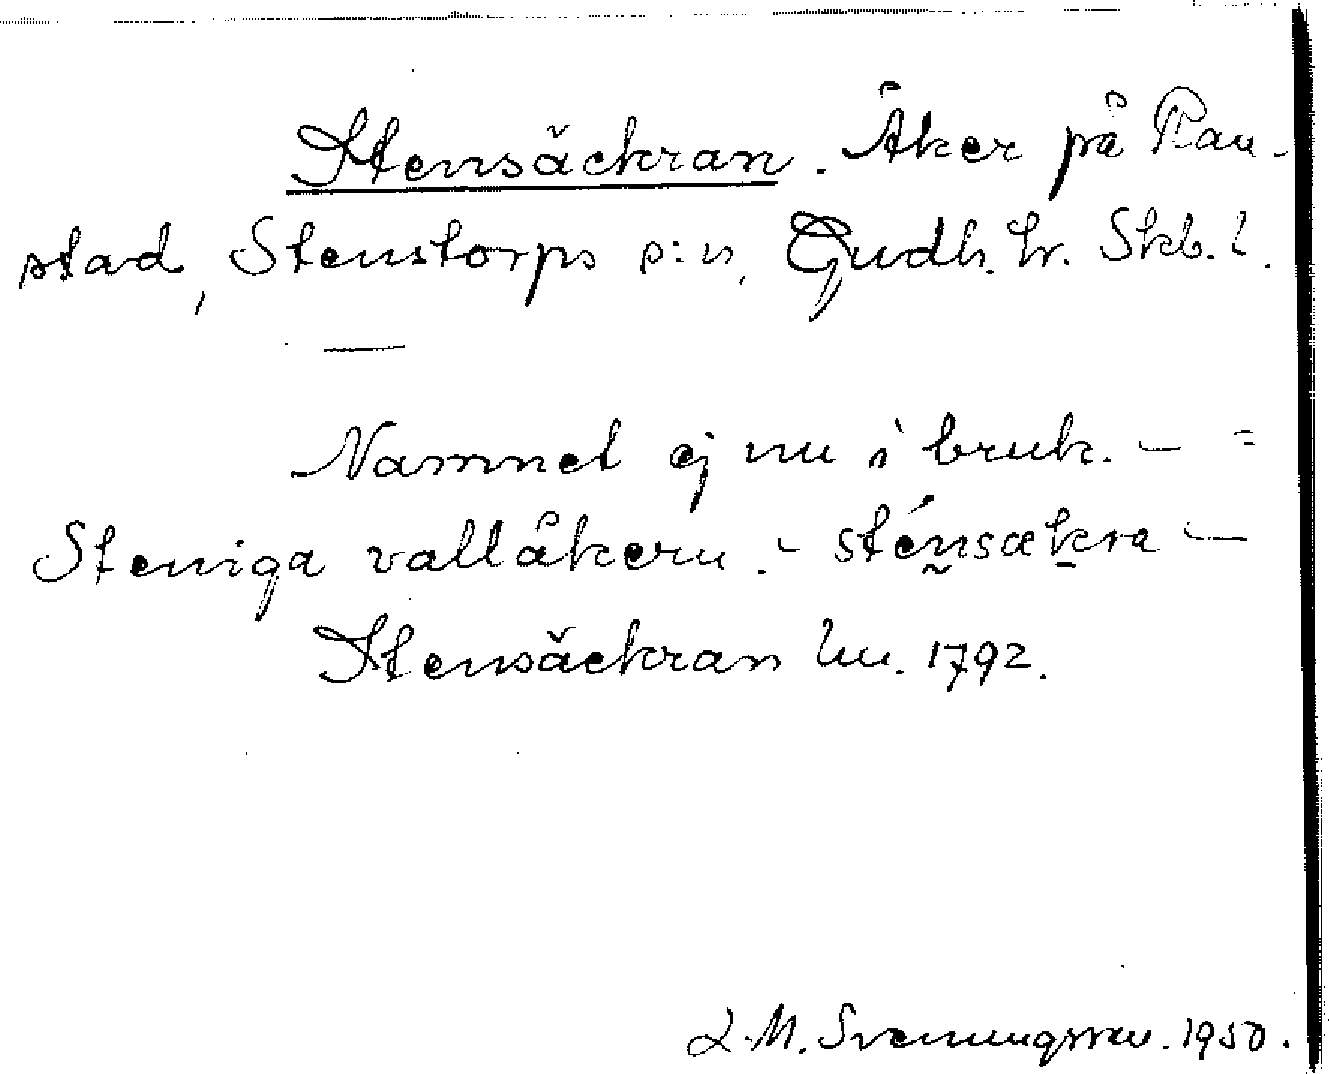 Stensäckran. Åker på Ran-
stad, Stenstorps s:n, Gudh. hr. Skb. l.
—
Namnet ej nu i bruk. — =
Steniga vallåkern. - sténsækra —
Stensäckran lm. 1792.
L. M. Svenungsson. 1950.